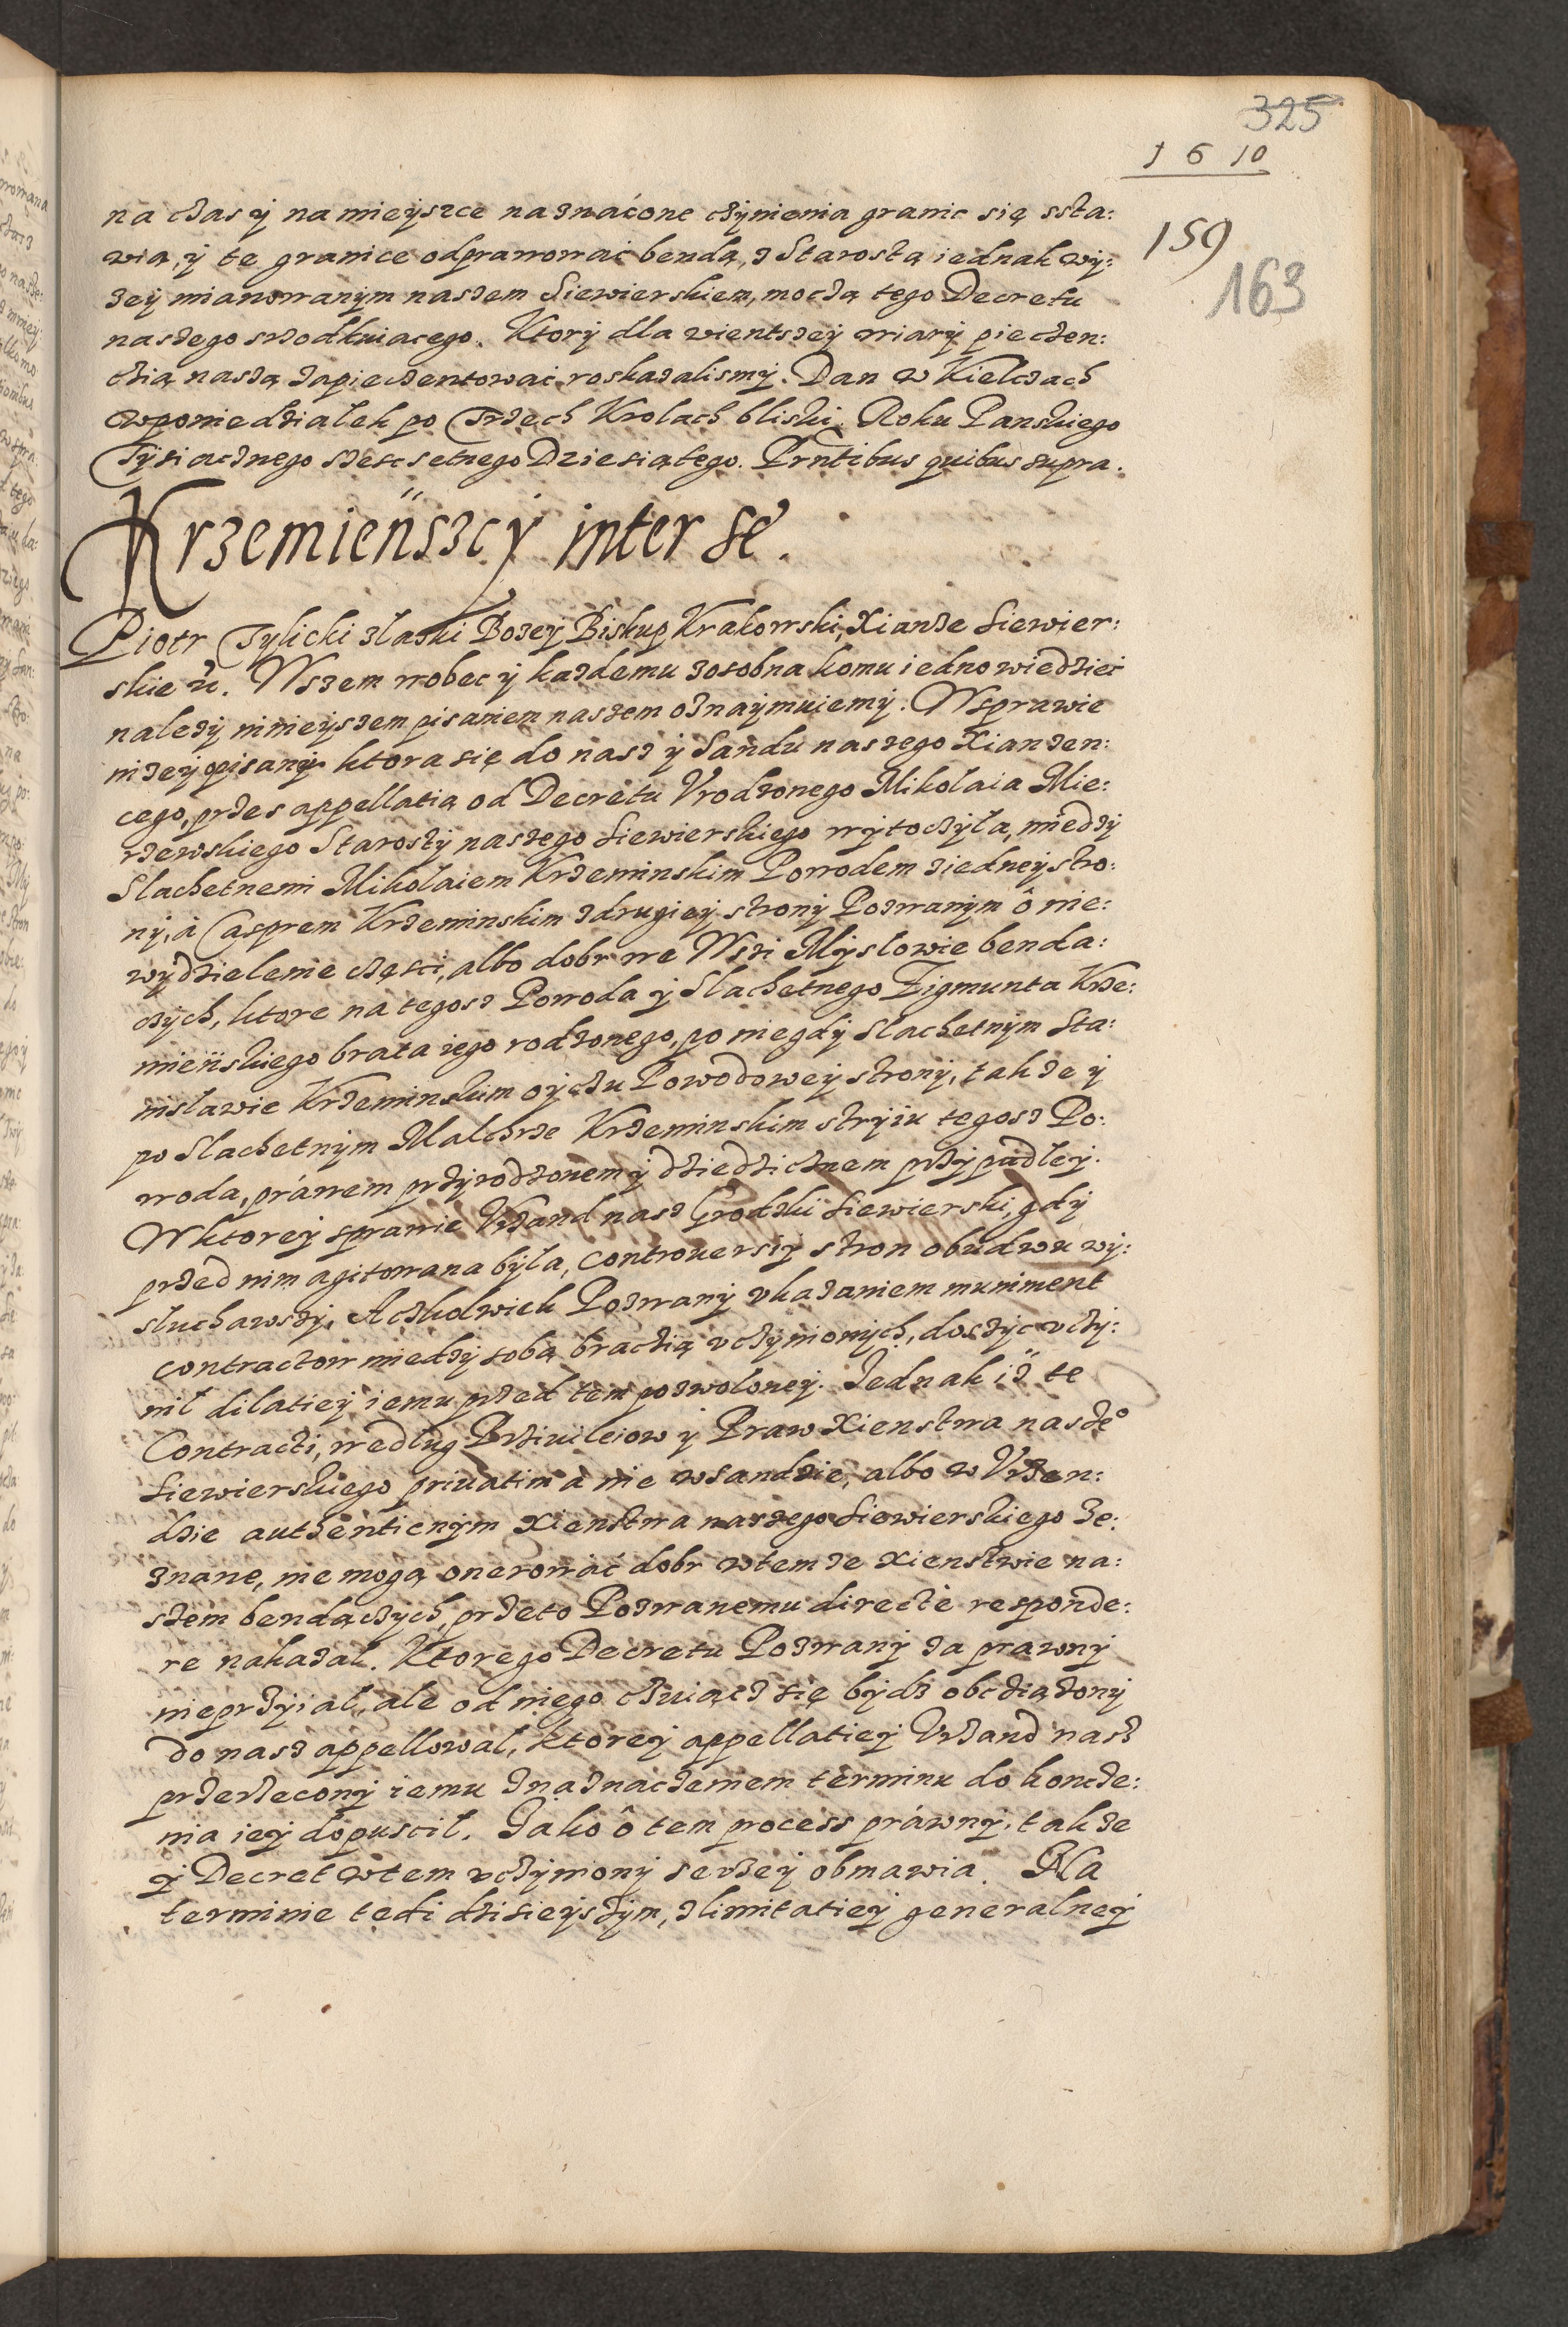 325
1610
159
163
na czas y na mieysce naznaćone czynienia granic się ssta:
wią, y te granice odprawować bendą, z Starostą iednak wy:
zey mianowanym naszem Siewierskiem, moczą tego Decretu
naszego srzodkuiacego. Ktory dla wientszey wiary pieczen:
czią naszą zapieczentować roskazalismy. Dan w Kielczach
w poniedzialek po Trzech Krolach bliski. Roku Panskiego
Tysiacznego szescsetnego Dziesiątego. Prntibus quibus supra.
Krzemieńszcy inter se.
Piotr Tylicki z laski Bozey Biskup Krakowski, Xianze Siewier:
skie etc. Wszem wobec y kazdemu zosobna komu iedno wiedzieć
nalezy ninieyszem pisaniem naszem oznaymuiemy. W sprawie
nizey pisaney ktora się do nasz y Sandu naszego Xianzen:
cego, przes appellatią od Decretu Vrodzonego Mikolaia Mie:
rzewskiego Starosty naszego Siewierskiego wytoczyla, miedzy
Slachetnemi Mikolaiem Krzeminskim Powodem z iedney stro:
ny, a Casprem Krzeminskim z drugiey strony Pozwanym ô nie:
wydzielenie części, albo dobr we Wsi Myslowie benda:
czych, ktore na tegosz Powoda y Slachetnego Zigmunta Krze:
mieńskiego brata iego rodzonego, po niegdy slachetnym Sta:
nislawie Krzeminskim oyczu Powodowey strony, takze y
po Slachetnym Malchrze Krzeminskim stryiu tegosz Po:
woda, práwem przyrodzonem y dziedzicznem przypadley.
W ktorey sprawie Vrzand nasz Grodzki Siewierski, gdy
przed nim agitowana byla, controuersiy stron obudwu wy:
sluchawszy. Aczkolwiek Pozwany vkazaniem muniment
contractow miedzy sobą braczią vczynionych, dosyc vczy:
nil dilatiey iemu przed tem pozwoloney. Jednak iz te
Contracti, wedlug Prziuileiow y Praw Xienstwa naszeo
Siewierskiego priuatim a nie w sandzie, albo w Vrzen:
dzie authenticnym Xienstwa naszego Siewierskiego ze:
znane, nie mogą onerowáć dobr w temze Xienstwie na:
szem bendączych, przeto Pozwanemu directè responde:
re nakazal. Ktorego Decretu Pozwany za prawny
nie przyial, ale od niego czuiącz się bydz obcziązony
do nasz appellowal, ktorey appellatiey Vrzand nasz
przerzecony iemu z naznaczeniem terminu do koncze:
nia iey dopuscil. Jako ô tem process práwny, takze
y Decret w tem vczyniony szerzey obmawia. Na
terminie tedi dzisieyszym, z limitatiey generalney